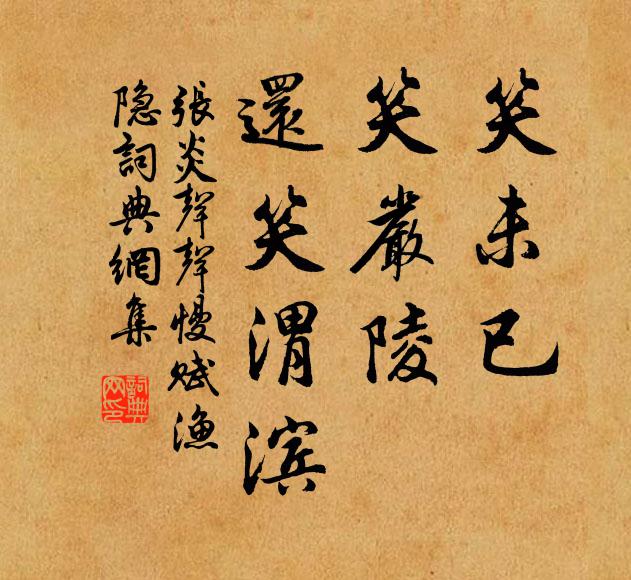 笑未已
笑嚴陵
還笑渭滨
張炎聲聲慢賦漁
隐詞典網集
詞典
网印